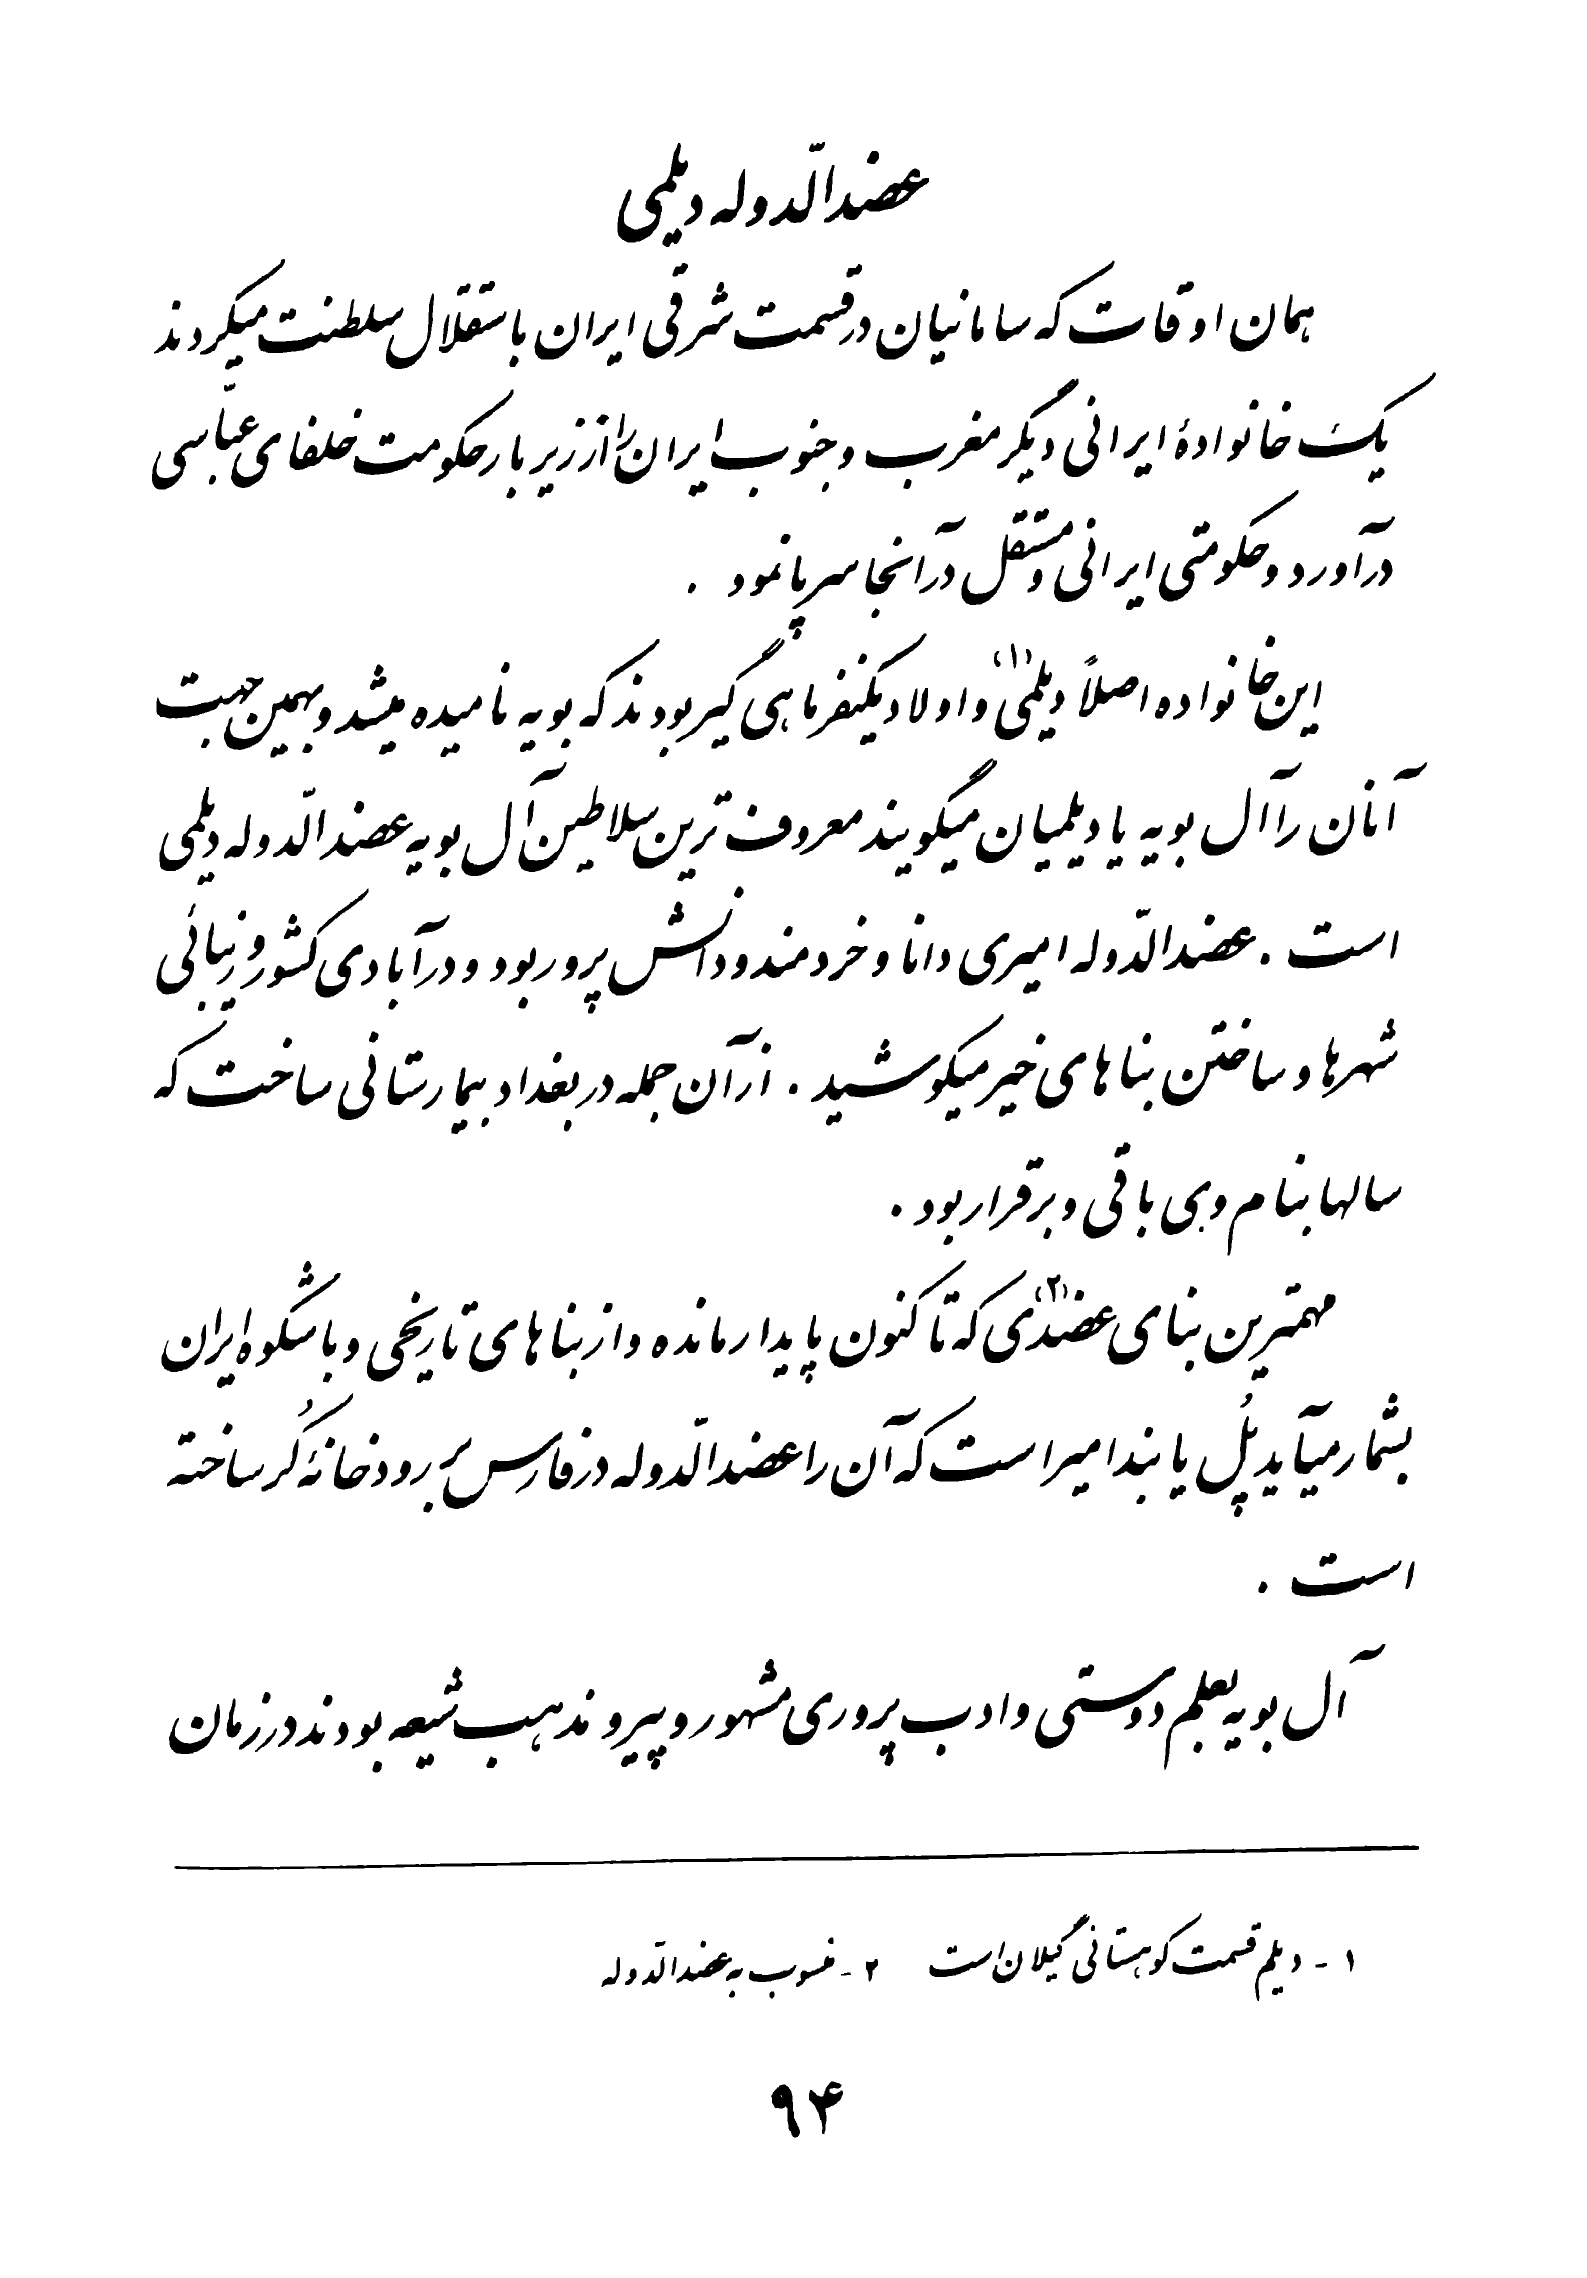 عضدالدّوله دیلمی
همان اوقات که سامانیان در قسمت شرقی ایران باستقلال سلطنت میکردند
یک خانوادهٔ ایرانی دیگر مغرب و جنوب ایران را از زیر بار حکومت خلفای عبّاسی
درآورد و حکومتی ایرانی و مستقل در آنجا سرپا نمود .
این خانواده اصلاً دیلمی(۱) و اولاد یکنفر ماهی گیر بودند که بویه نامیده میشد و بهمین جهت
آنان را آل بویه یا دیلمیان میگویند معروف ترین سلاطین آل بویه عضدالدّوله دیلمی
است . عضدالدّوله امیری دانا و خردمند و دانش پرور بود و در آبادی کشور و زیبائی
شهرها و ساختن بناهای خیر میکوشید . از آن جمله در بغداد بیمارستانی ساخت که
سالها بنام وی باقی و برقرار بود .
مهمترین بنای عضدی(۲) که تاکنون پایدار مانده و از بناهای تاریخی و باشکوه ایران
بشمار میآید پُل یا بند امیر است که آن را عضدالدّوله در فارس بر رودخانهٔ کُر ساخته
است .
آل بویه بعلم دوستی و ادب پروری مشهور و پیرو مذهب شیعه بودند در زمان
۱ - دیلم قسمت کوهستانی گیلان است ۲ - منسوب به عضدالدّوله
۹۴